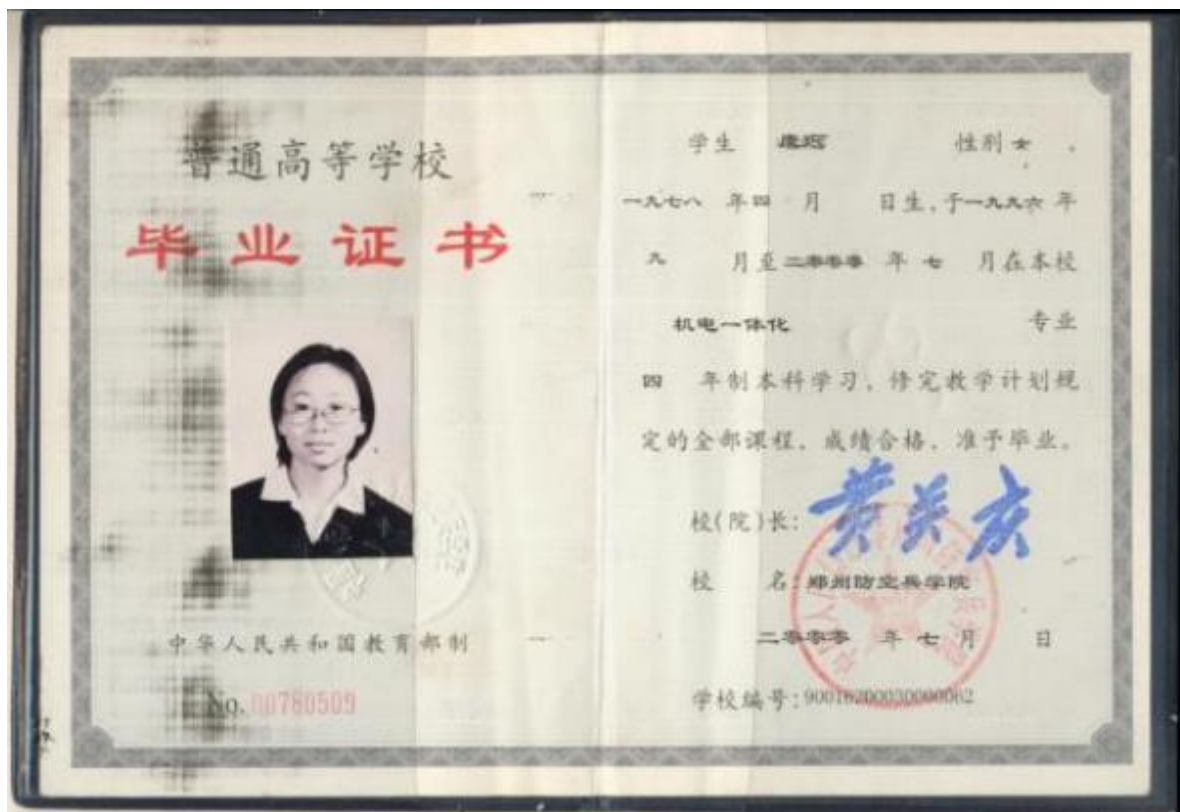 普通高等学校
毕业证书
中华人民共和国教育部制
No. 00760509
学生 性别 女 ,
一九七八 年 四 月 日生,于 一九九六 年
九 月至 二零零零 年 七 月在本校
机电一体化 专业
四 年制本科学习,修完教学计划规
定的全部课程,成绩合格,准予毕业。
校(院)长:
校 名: 郑州防空兵学院
二零零零 年 七 月 日
学校编号: